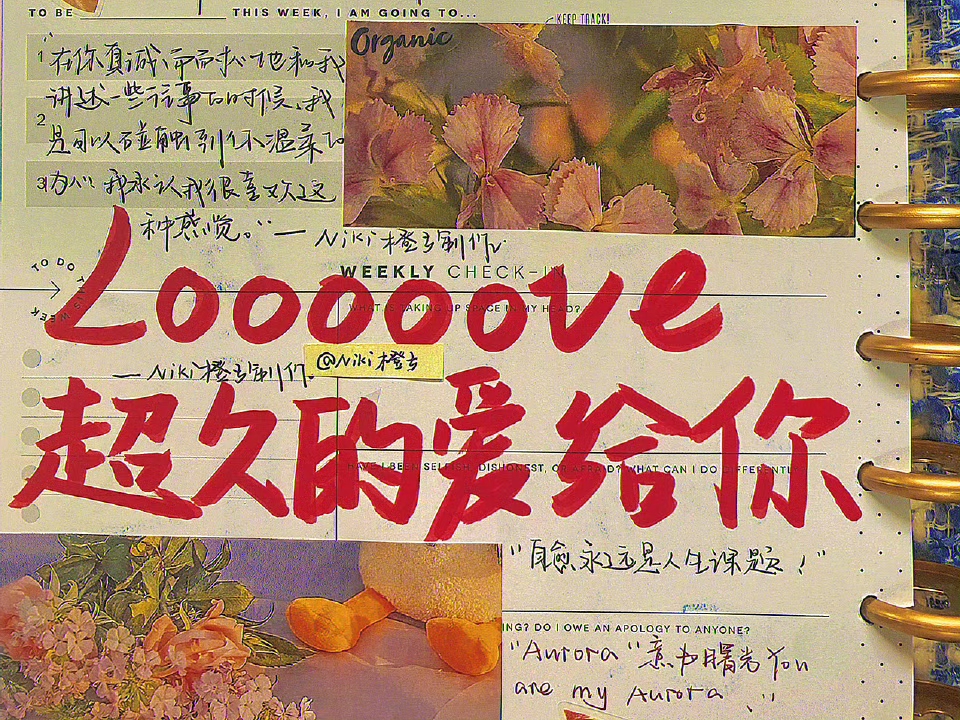 TO BE
THIS WEEK, I AM GOING TO...
KEEP TRACK!
Organic
1 "在你真诚、而而扒心地和我
讲述一些往事的时候、我
2
是可以碰触到你温柔的
3 内心. 我承认我很喜欢这
种感觉。" — Niki橙子制作.
TO DO THIS WEEK
WEEKLY CHECK-IN
Looooove
WHAT IS TAKING UP SPACE IN MY HEAD?
— Niki橙子制作.
@Niki橙子
超久的爱给你
HAVE I BEEN SELFISH, DISHONEST, OR AFRAID? WHAT CAN I DO DIFFERENTLY
"自愈永远是人生课题!"
ING? DO I OWE AN APOLOGY TO ANYONE?
"Aurora" 意为曙光 You
are my Aurora